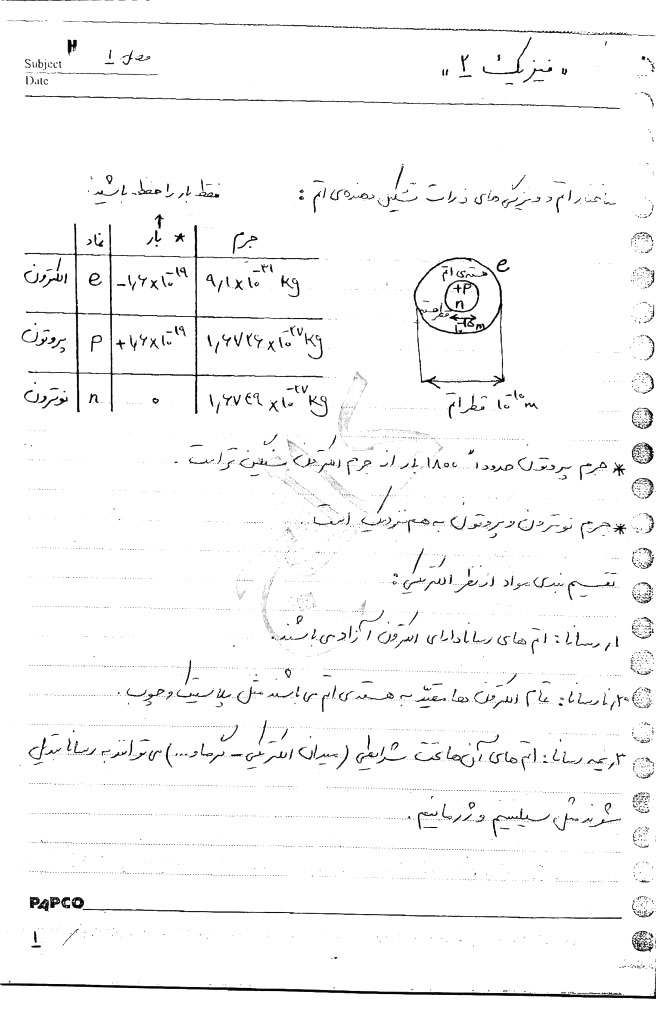 Subject فصل ۱
Date
« فیزیک ۲ »
ساختار اتم و ویژگی های ذرات تشکیل دهنده‌ی اتم :
فقط بار را حفظ باشید.
نماد بار * جرم
الکترون e -۱٫۶×۱۰⁻¹⁹ ۹٫۱×۱۰⁻³¹ kg
پروتون P +۱٫۶×۱۰⁻¹⁹ ۱٫۶۷۲۶×۱۰⁻²⁷ kg
نوترون n ۰ ۱٫۶۷۴۹×۱۰⁻²⁷ kg
e
هسته‌ی اتم
+P
n
قطر هسته
۱۰⁻¹⁵m
قطر اتم ۱۰⁻¹⁰m
* جرم پروتون حدوداً ۱۸۰۰ بار از جرم الکترون سنگین تر است .
* جرم نوترون و پروتون به هم نزدیک است .
تقسیم بندی مواد از نظر الکتریکی :
۱٫ رسانا : اتم های رسانا دارای الکترون آزاد می باشند .
۲٫ نارسانا : تمام الکترون ها مقیّد به هسته‌ی اتم می باشند مثل پلاستیک و چوب .
۳٫ نیمه رسانا : اتم های آن ها تحت شرایطی (میدان الکتریکی - گرما و ...) می توانند به رسانا تبدیل
شوند مثل سیلیسیم و ژرمانیم .
PAPCO
۱